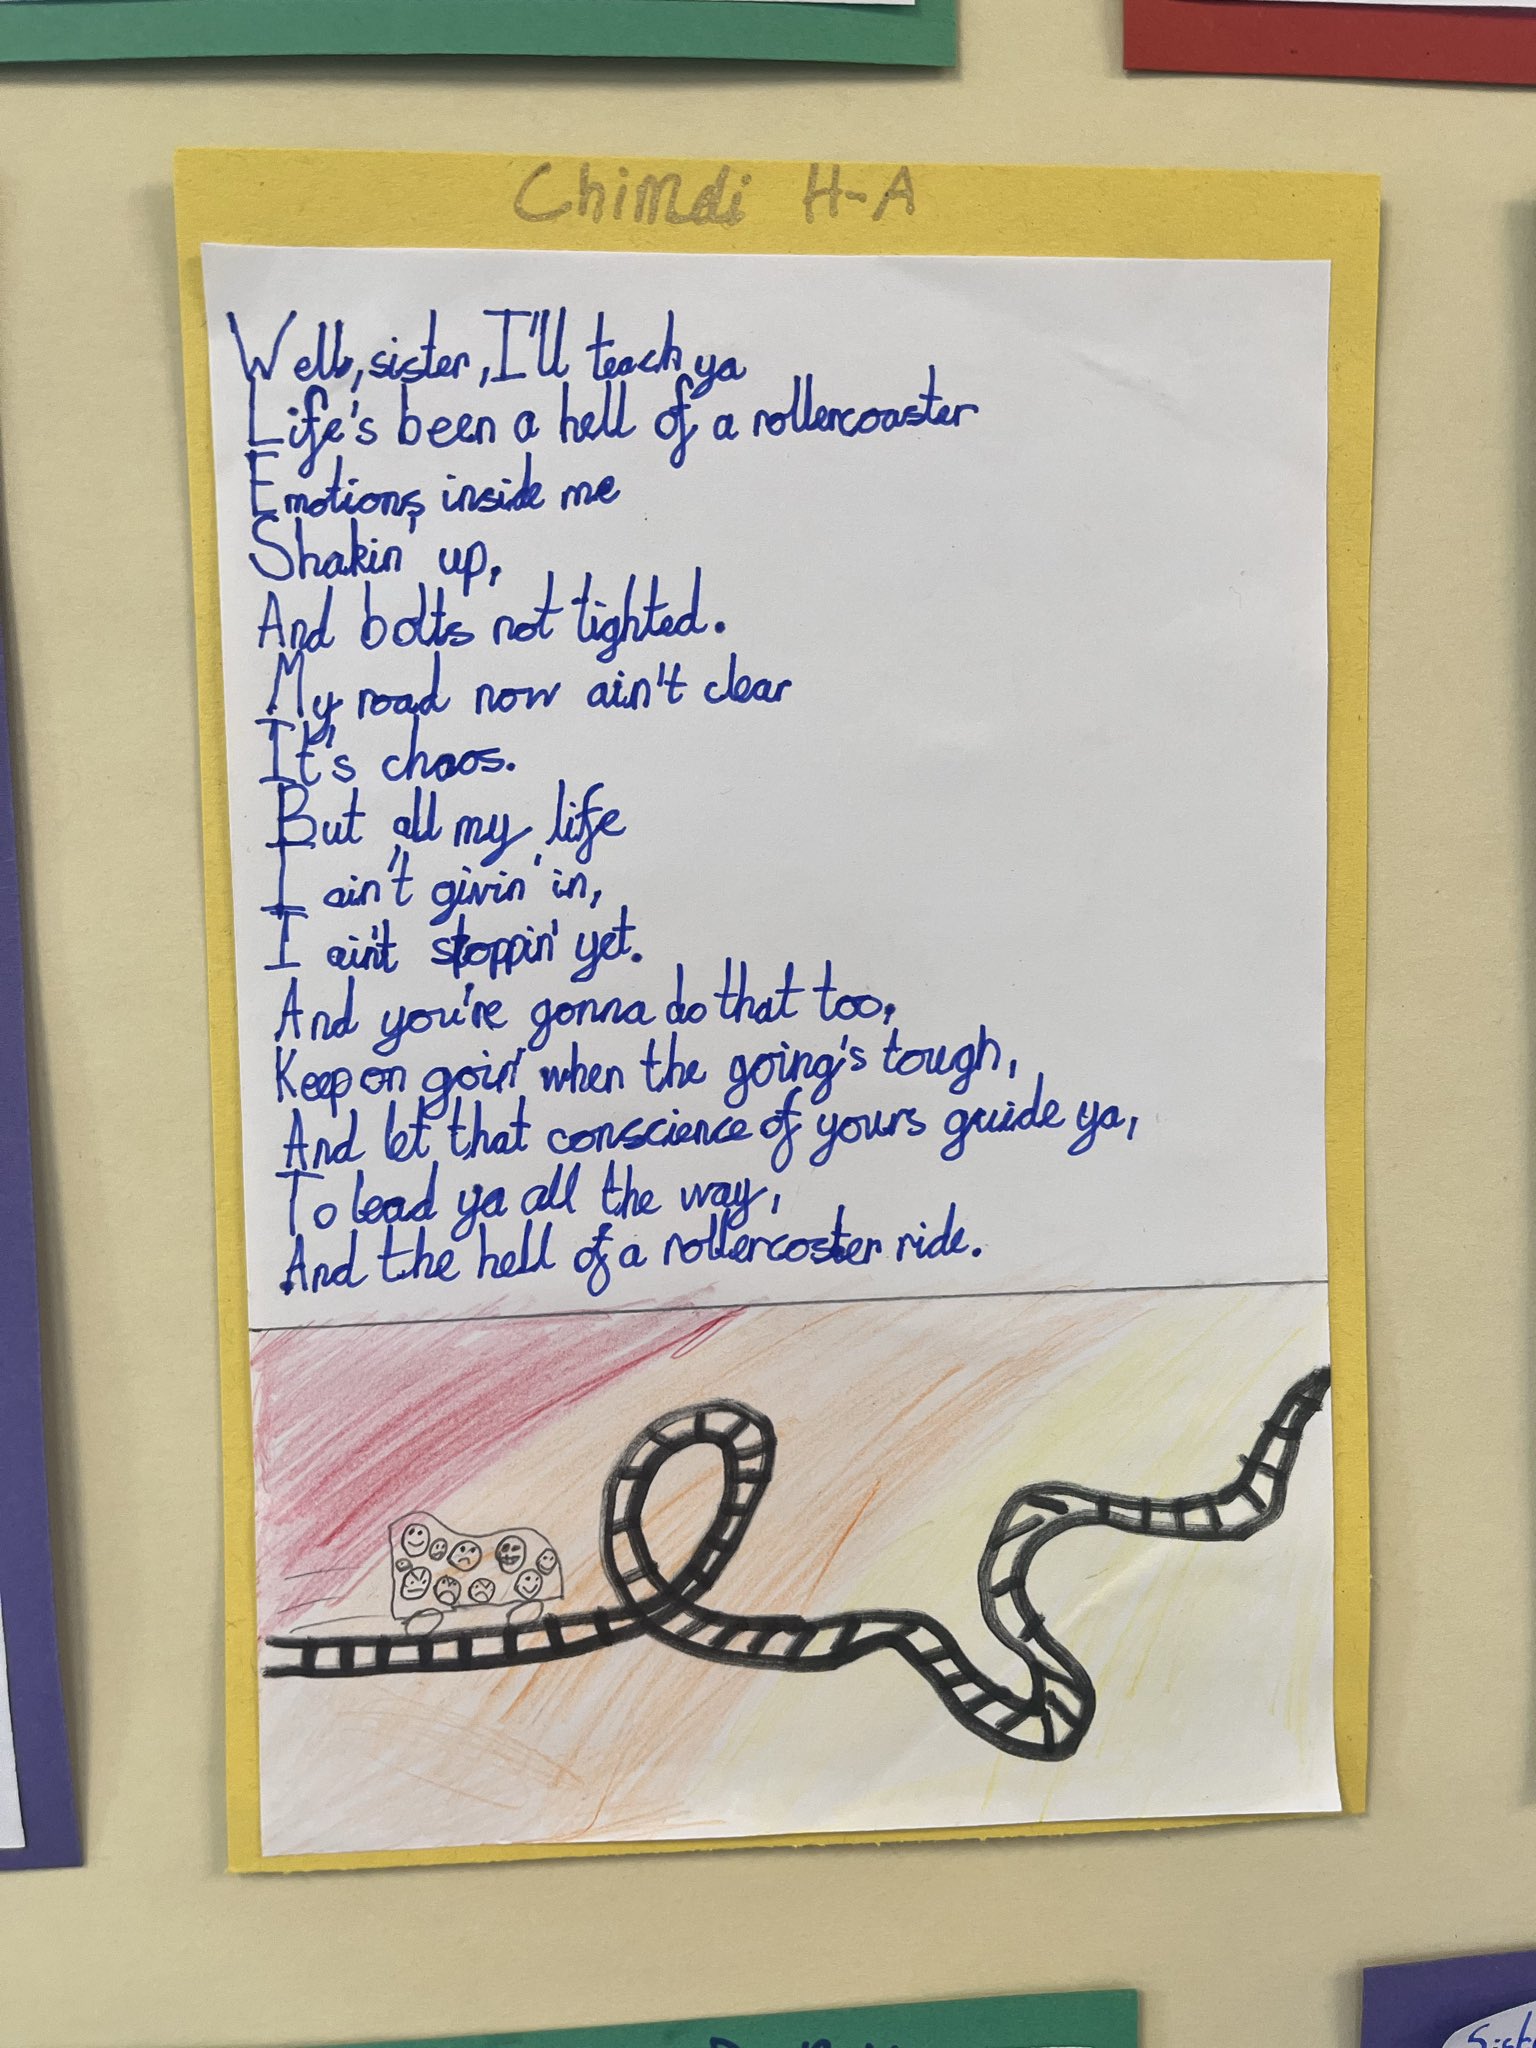 Chimdi H-A
Well, sister, I'll teach ya
Life's been a hell of a rollercoaster
Emotions inside me
Shakin' up,
And bolts not tighted.
My road now ain't clear
It's chaos.
But all my life
I ain't givin' in,
I ain't stoppin' yet.
And you're gonna do that too,
Keep on goin' when the going's tough,
And let that conscience of yours guide ya,
To lead ya all the way,
And the hell of a rollercoster ride.